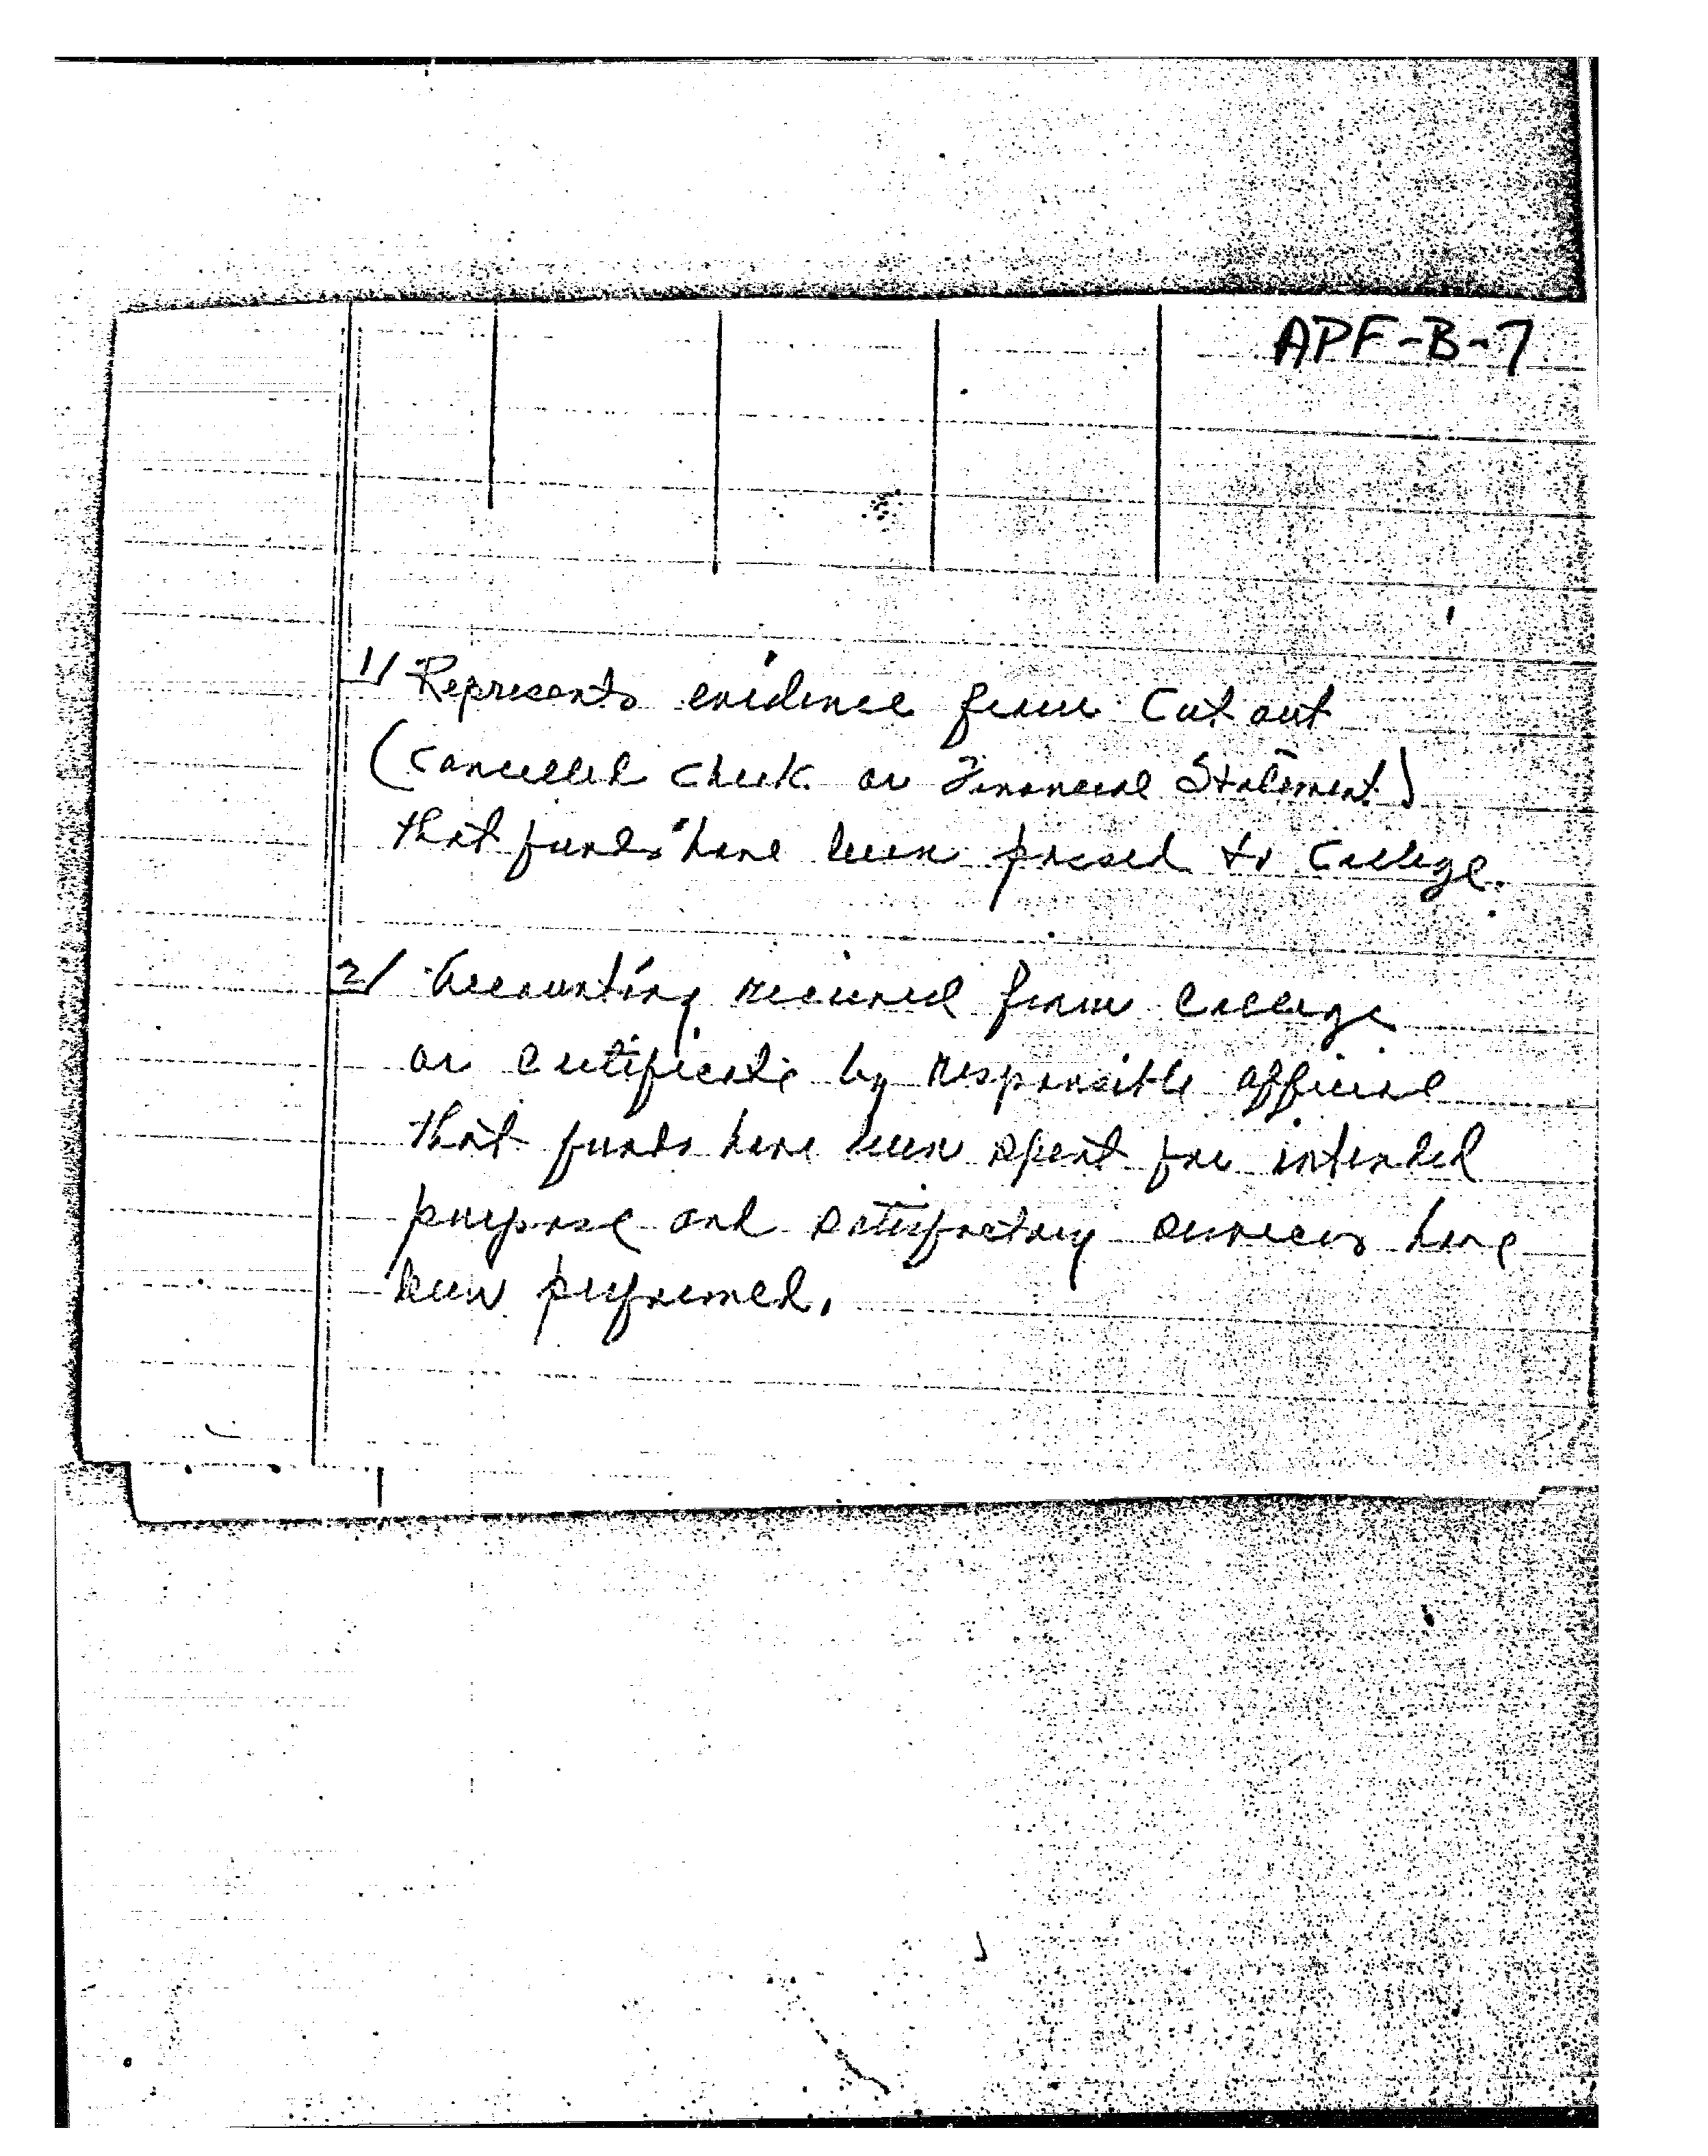 APF-B-7
1/ Represents evidence from Cut out
(Cancelled check or Financial Statement)
that funds have been passed to College.
2/ Accounting received from College
or certificate by responsible official
that funds have been spent for intended
purpose and satisfactory services have
been performed.